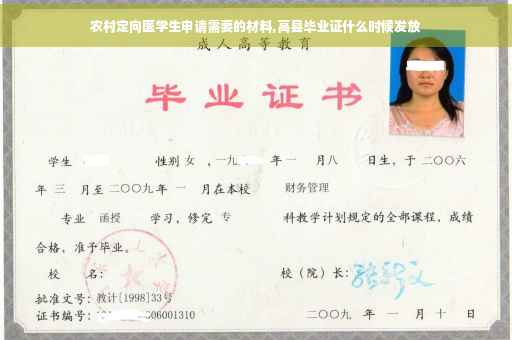 农村定向医学生申请需要的材料,莒县毕业证什么时候发放
成人高等教育
毕业证书
学生 性别 女 ,一九 年 一 月 八 日生，于 二〇〇六
年 三 月至 二〇〇九 年 一 月在本校 财务管理
专业 函授 学习，修完 专 科教学计划规定的全部课程，成绩
合格，准予毕业。
校 名： 校（院）长：
批准文号：教计[1998]33号
证书编号： 06001310 二〇〇九 年 一 月 十 日